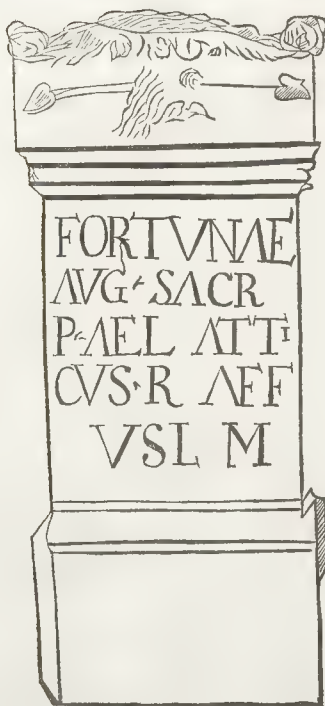 FORTVNAE
AVG SACR
P AEL ATTI
CVS R AEF
VSL M